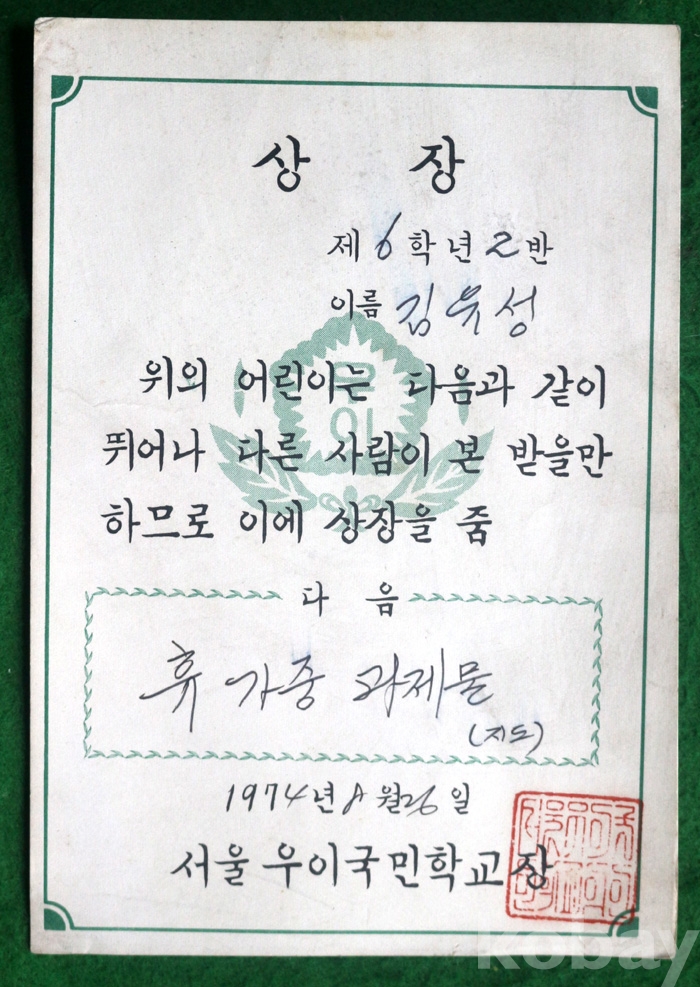 상 장
제 6 학년 2 반
이름 김유성
우이
위의 어린이는 다음과 같이
뛰어나 다른 사람이 본 받을만
하므로 이에 상장을 줌
다 음
휴가중 과제물
(지도)
1974년 8월 26일
서울 우이국민학교장
kobay